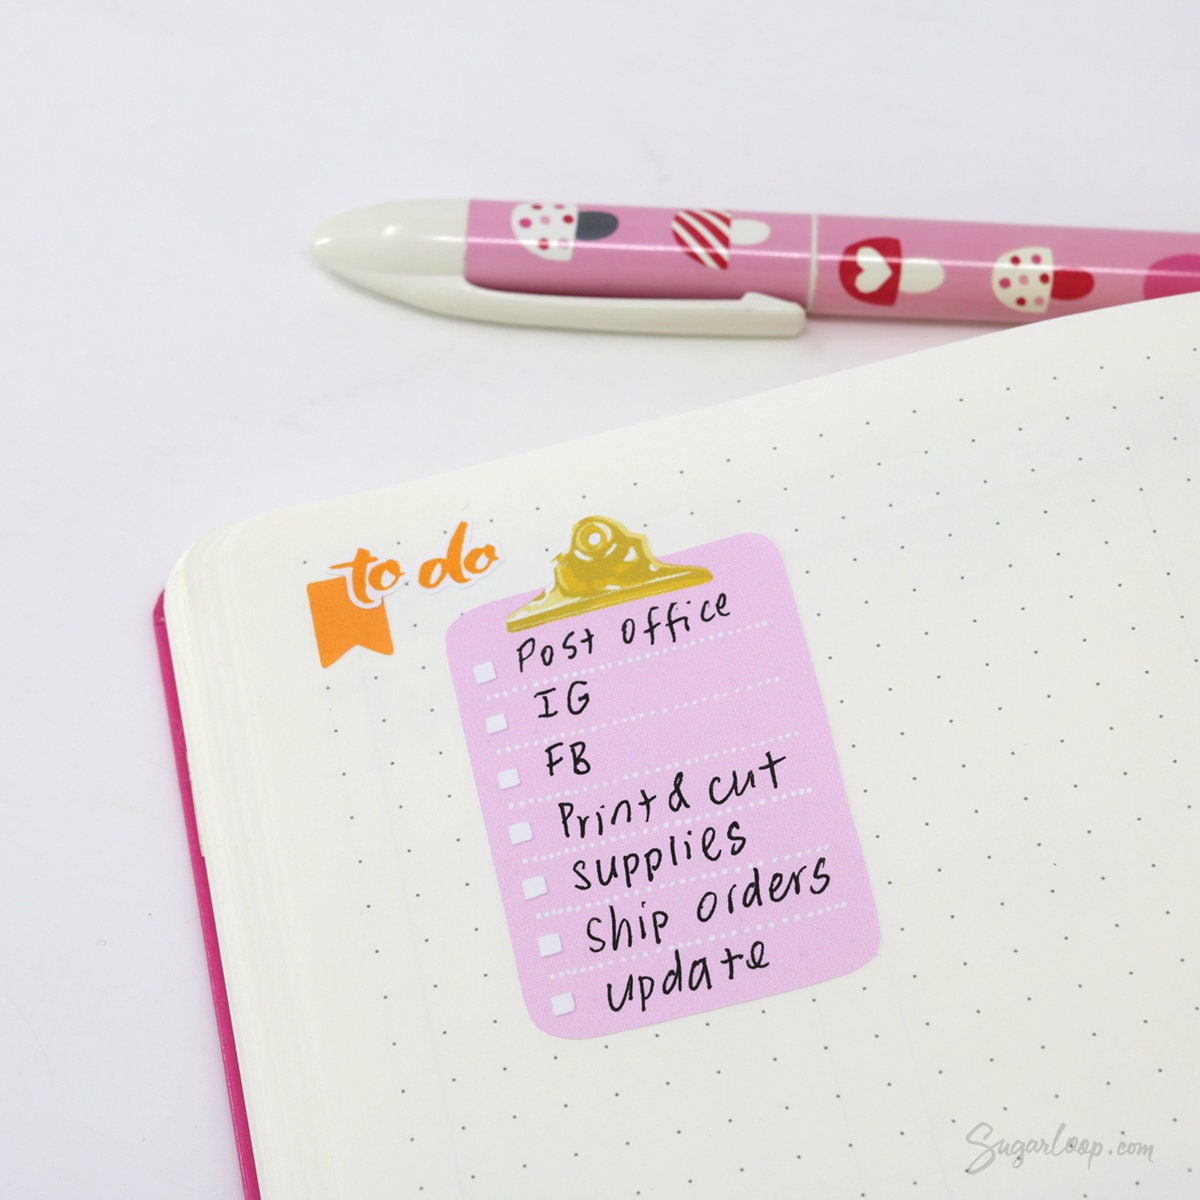 to do
Post office
IG
FB
Print & cut
supplies
Ship orders
update
Sugarloop.com